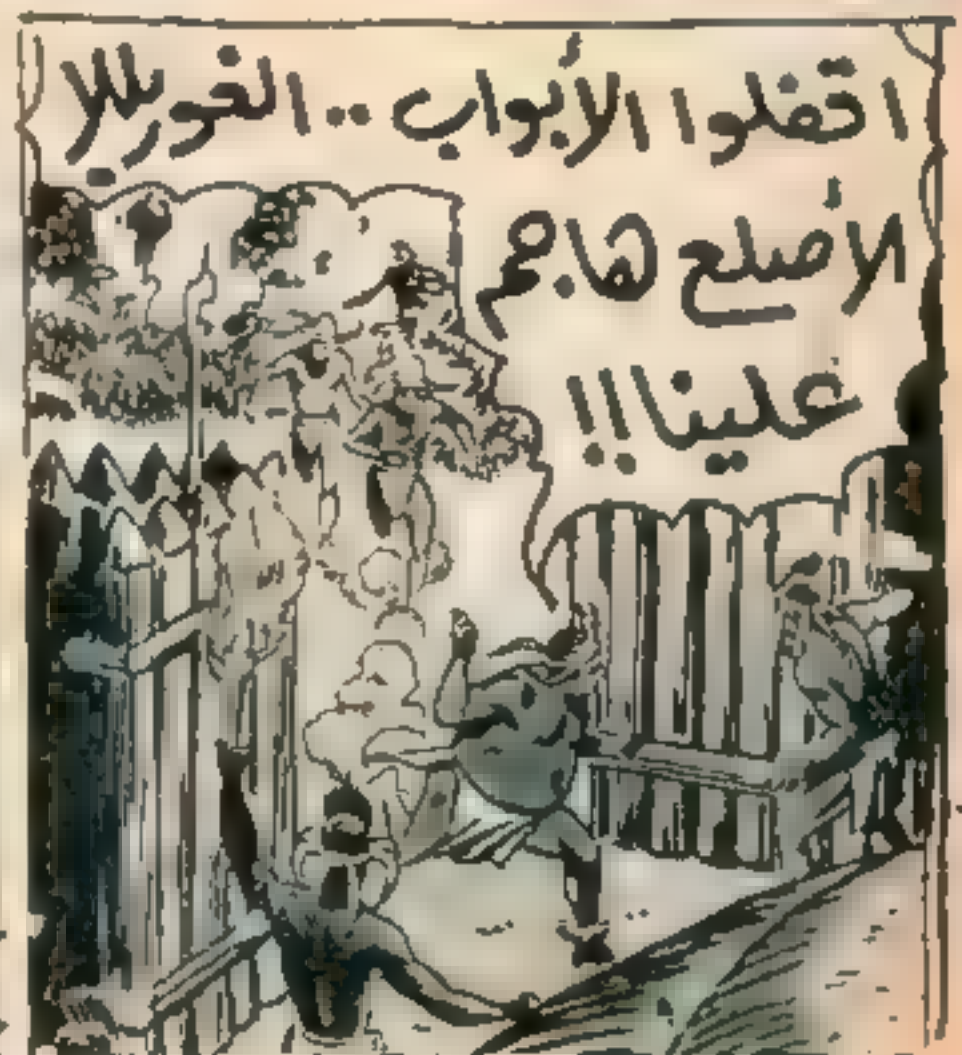 اقفلوا الأبواب .. الغوريللا
الأصلع هاجم
علينا!!